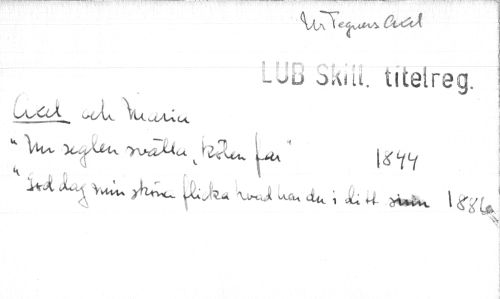 Ur Tegners Axel
LUB Skill. titelreg.
Axel och Maria
"Nu seglen svälla, kölen far" 1844
"God dag min sköna flicka hvad har du i ditt sinn 1886